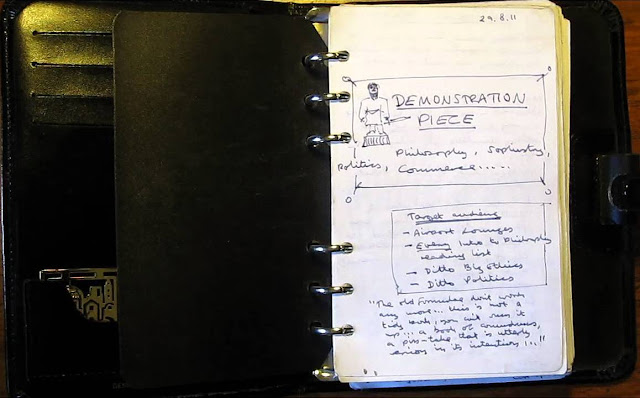 29.8.11
DEMONSTRATION
PIECE
Philosophy, Sophistry,
Politics, Commerce.....
Target audience
- Airport Lounges
- Every Intro to Philosophy
reading list
- Ditto Biz Ethics
- Ditto Politics
"The old formulae don't work
any more... this is not a
tidy book, you will
up... a book of conundrums,
a piss-take that is utterly
serious in its intentions!..."